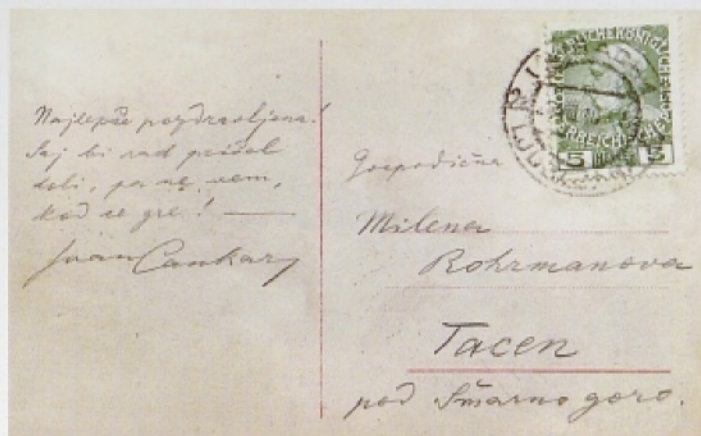 Najlepše pozdravljena!
Saj bi rad prišel
dol, pa ne vem,
kod se gre! —
Ivan Cankar
Gospodična
Milena
Rohrmanova
Tacen
pod Šmarno goro.
5 5